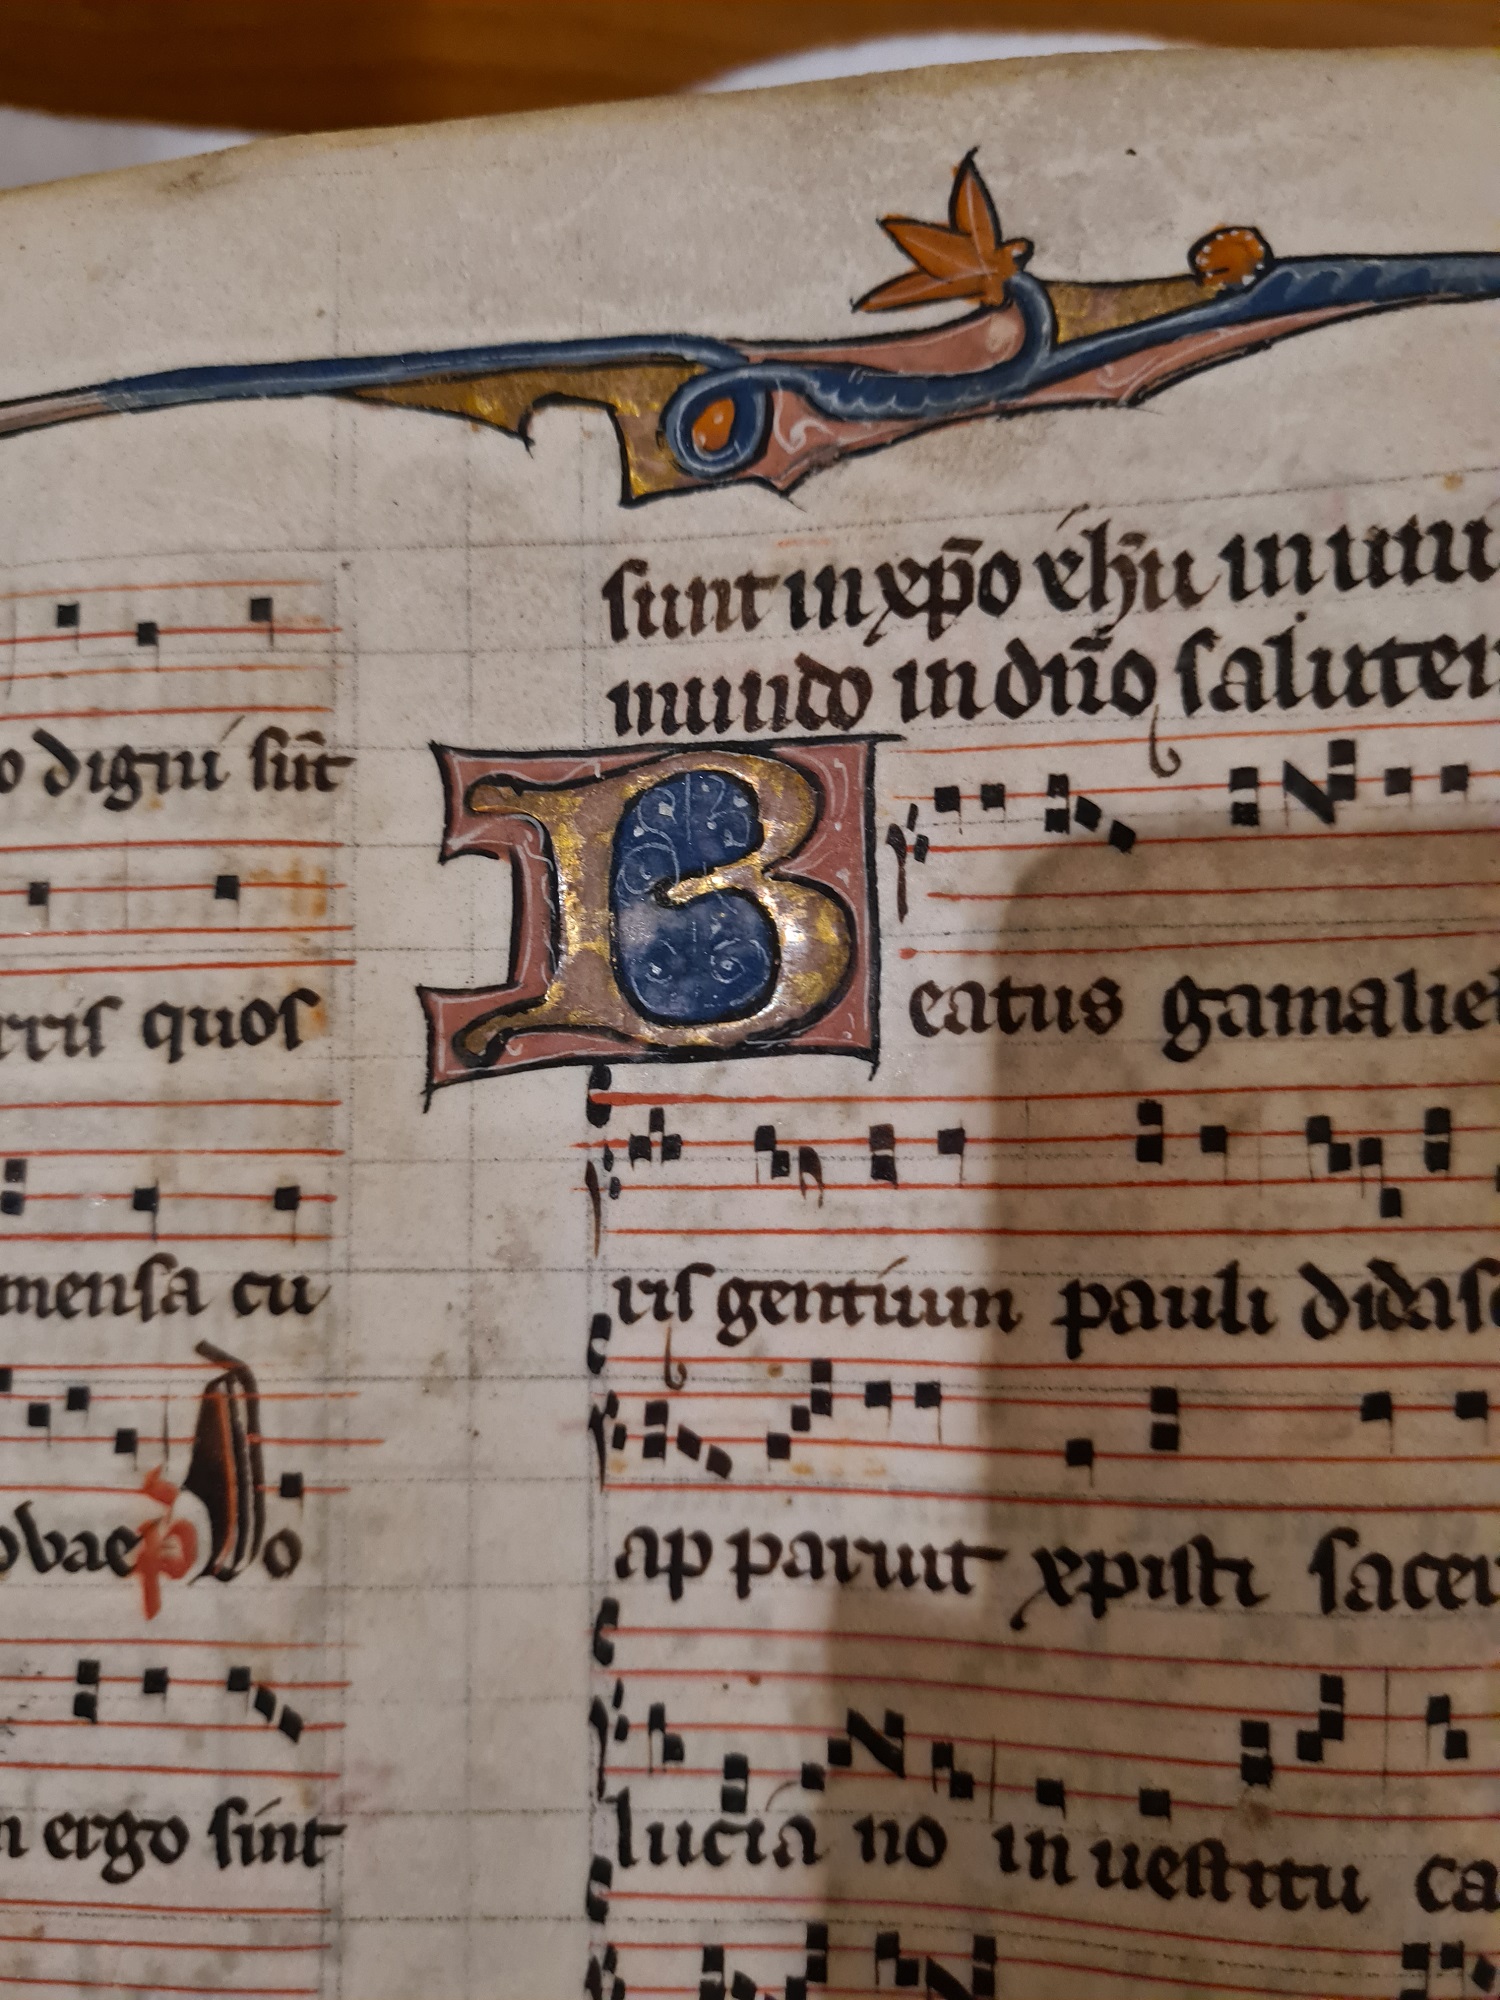 o digni sūt
rris quos
mensa cu
ovae p Do
n ergo sint
sunt in xp̄o ih̄u in uni
mundo in dn̄o salutem
Beatus gamaliel
ris gentium pauli didasc
apparuit xpisti sacer
luciano in uestitu ca